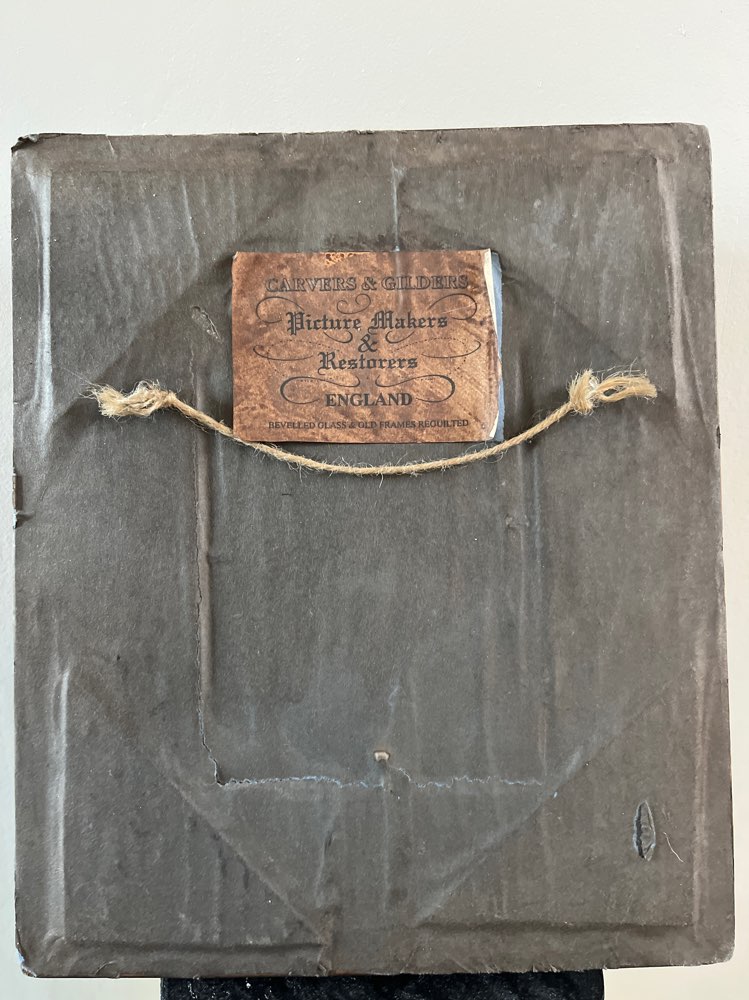 CARVERS & GILDERS
Picture Makers
&
Restorers
ENGLAND
BEVELLED GLASS & OLD FRAMES REGUILTED